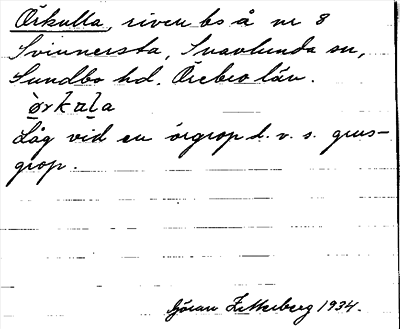 Örkulla, riven bs å nr 8
Svinnersta, Snavlunda sn,
Sundbo hd. Örebro län.
Låg vid en örgrop d. v. s. grus-
grop.
Göran Zetterberg 1934.